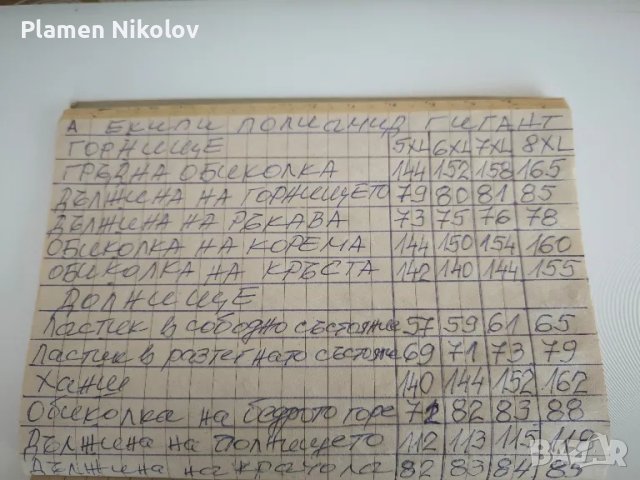 Plamen Nikolov
А ЕКИПИ ПОЛИАМИД ГИГАНТ
ГОРНИЩЕ 5XL 6XL 7XL 8XL
ГРЪДНА ОБИКОЛКА 144 152 158 165
ДЪЛЖИНА НА ГОРНИЩЕТО 79 80 81 85
ДЪЛЖИНА НА РЪКАВА 73 75 76 78
ОБИКОЛКА НА КОРЕМА 144 150 154 160
ОБИКОЛКА НА КРЪСТА 142 140 144 155
ДОЛНИЩЕ
Ластик в свободно състояние 57 59 61 65
Ластик в разтегнато състояние 69 71 73 79
Ханш 140 144 152 162
Обиколка на бедрото горе 82 83 88
Дължина на долнището 112 113 115
Дължина на крачола 82 83 84 85
BAZAR